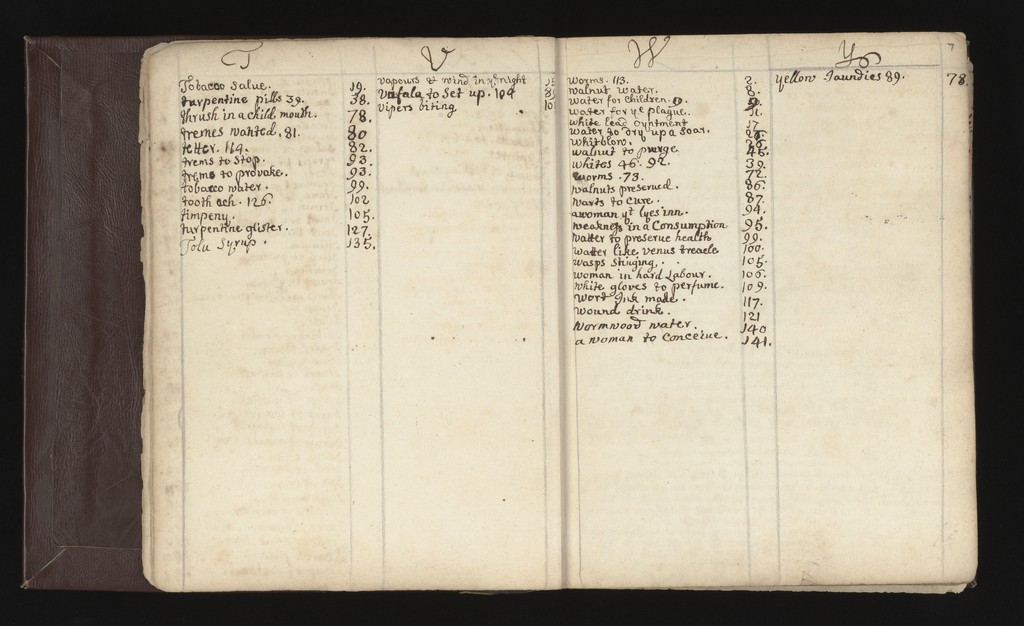 T
Tobacco Salve. 19.
turpentine pills 39. 38.
thrush in a child mouth. 78.
tremes wanted. 81. 80
tetter. 114. 82.
trems to stop. 93.
trems to provake. 93.
tobacco water. 99.
tooth ach. 126. 102
timpeny. 105.
turpentine glister. 127.
Tolu Syrup. 135.
V
vapours & wind in ye night
vufala to Set up. 104
vipers biting
W
worms. 113. 2.
walnut water. 8.
water for children.
water for ye plague. 11.
white lead oyntment 17
water to dry up a Soar.
whitblow.
walnut to purge 45.
whites 46. 92. 39.
worms. 73. 72.
walnuts preserved. 86.
warts to cure. 87.
a woman yt lyes inn. 94.
weakness in a Consumption 95.
watter to preserve health 99.
watter like venus treacle 100.
wasps stinging. 105.
woman in hard Labour. 106.
white gloves to perfume. 109.
wort Ink made. 117.
wound drink. 121
wormwood water. 140
a woman to Conceive. 141.
Y
7
yellow Jaundies 89. 78.